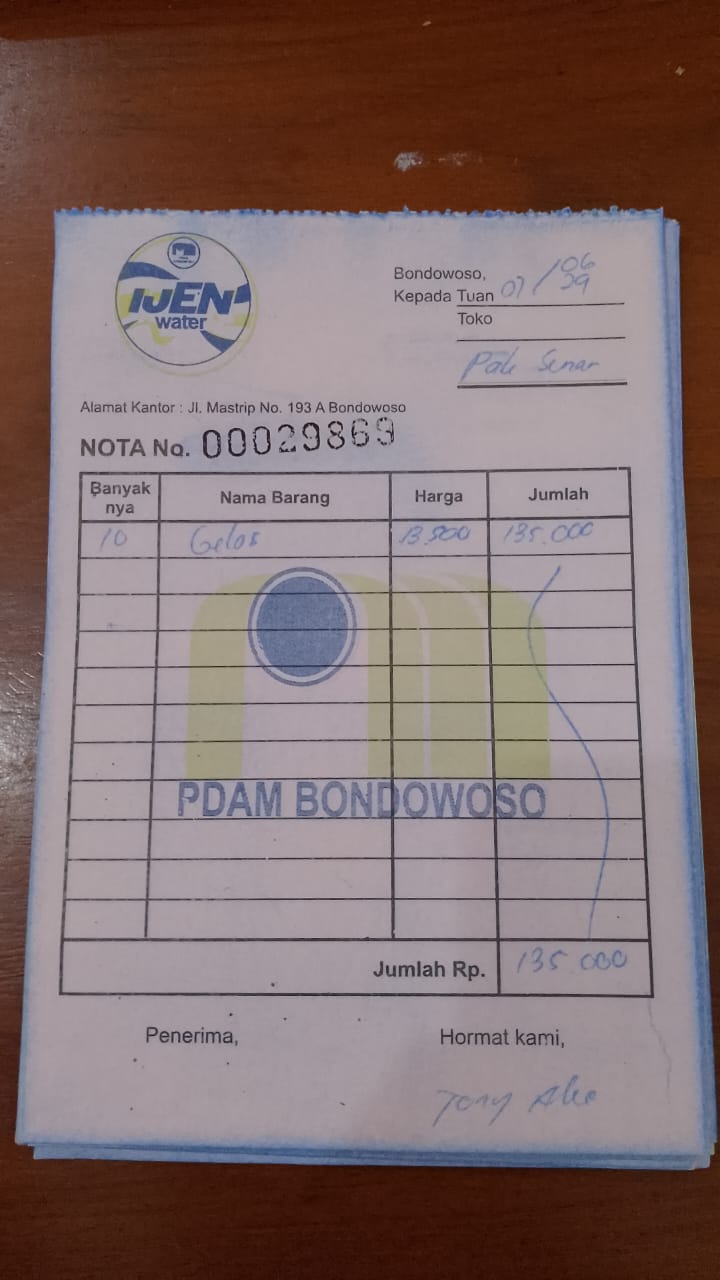 IJEN
water
Bondowoso,
07/06
24
Kepada Tuan
Toko
Pak
Alamat Kantor : Jl. Mastrip No. 193 A Bondowoso
NOTA No. 00029869
Banyak nya Nama Barang Harga Jumlah
10 Gelas 13.500 135.000
PDAM BONDOWOSO
Jumlah Rp. 135.000
Penerima, Hormat kami,
Tony